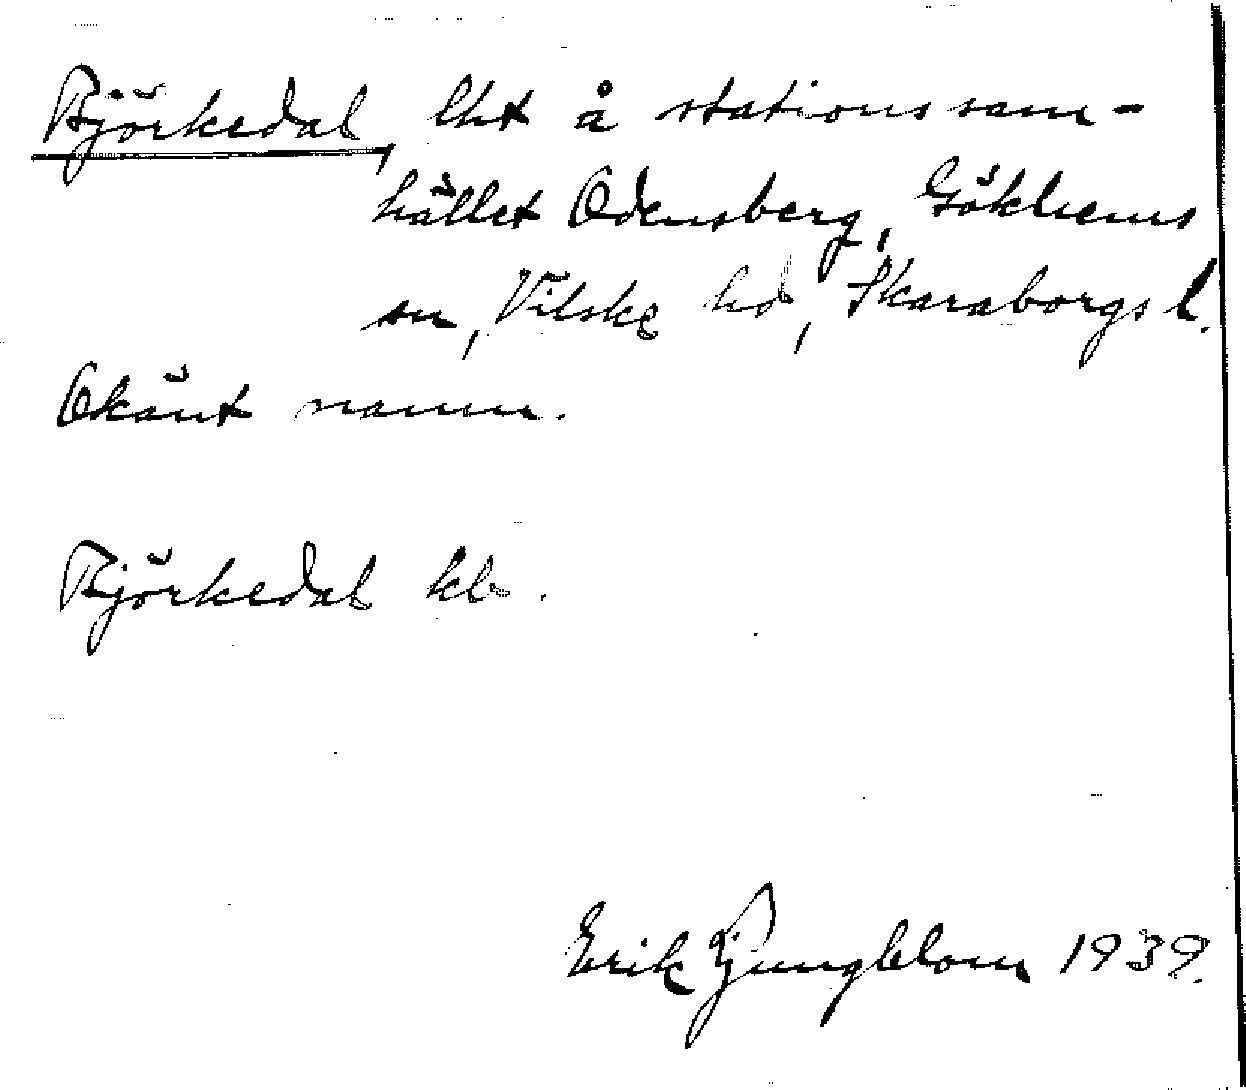 Björkedal, lht å stationssam-
hället Odensberg, Gökhems
sn, Vilske hd, Skaraborgs l.
Okänt namn.
Björkedal kb.
Erik Ljungblom 1939.